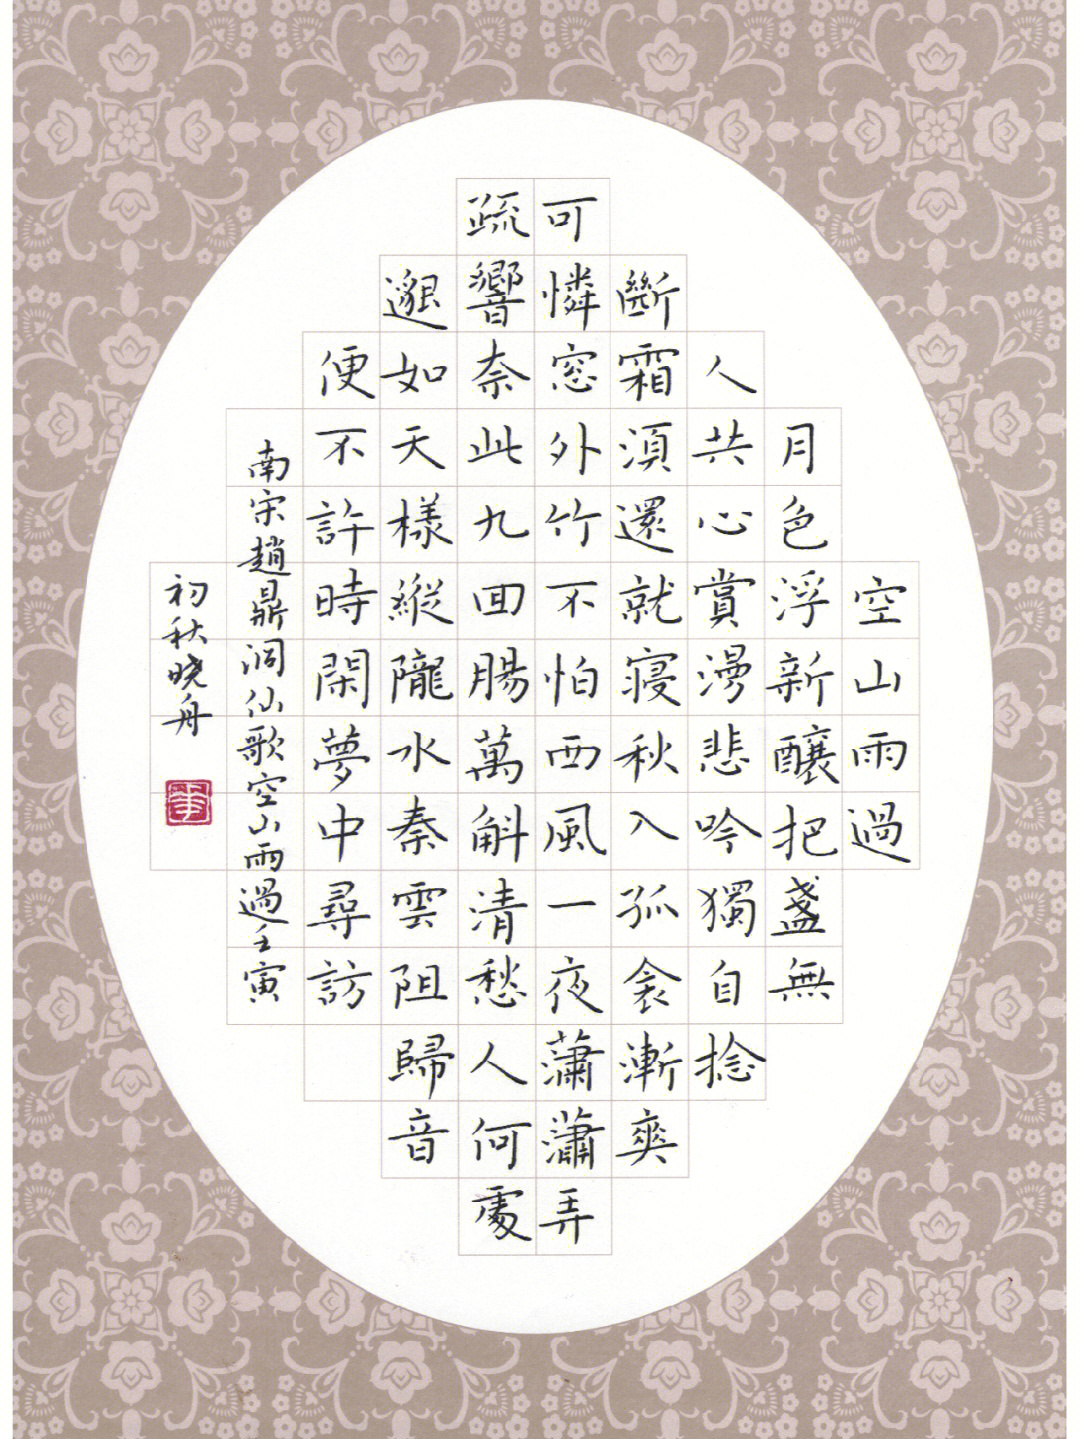 空山雨過
月色浮新釀把盞無
人共心賞漫悲吟獨自捻
斷霜須還就寢秋入孤衾漸爽
可憐窓外竹不怕西風一夜蕭瀟弄
疏響奈此九回腸萬斛清愁人何處
邈如天樣縱隴水秦雲阻歸音
便不許時閑夢中尋訪
南宋趙鼎洞仙歌空山雨過壬寅
初秋曉舟